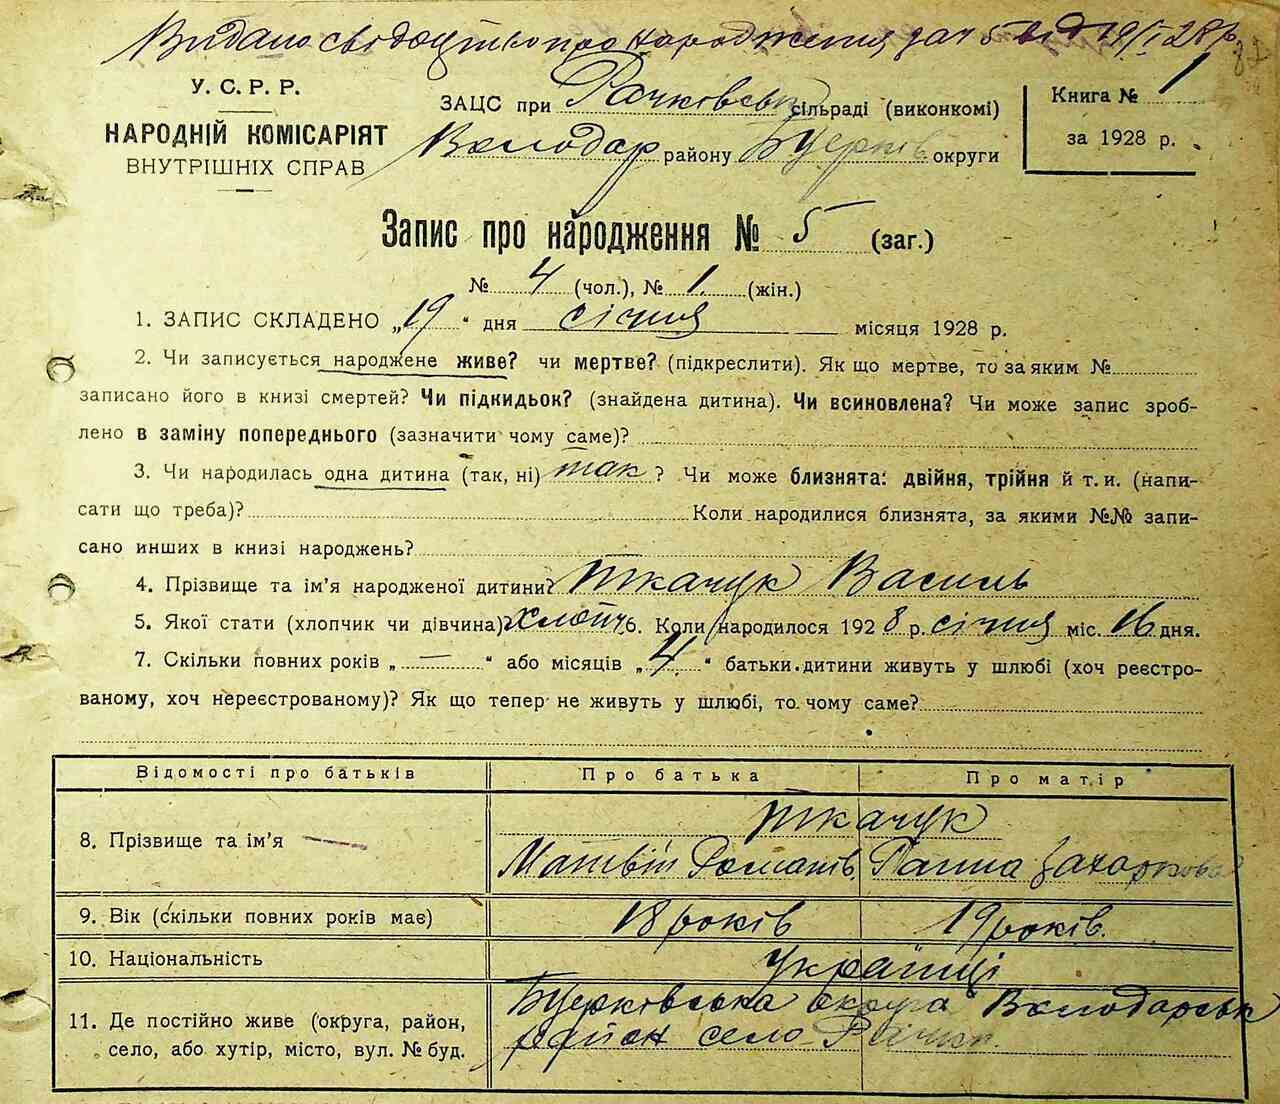 Видано свідоцтво про народження за ч 5 від 19/I 28 р
У. С. Р. Р.
НАРОДНІЙ КОМІСАРІЯТ
ВНУТРІШНІХ СПРАВ
ЗАЦС при Рачковськ сільраді (виконкомі)
Володар району Бцерків округи
Книга № 1
за 1928 р.
Запис про народження № 5 (заг.)
№ 4 (чол.), № 1 (жін.)
1. ЗАПИС СКЛАДЕНО „19“ дня січня місяця 1928 р.
2. Чи записується народжене живе? чи мертве? (підкреслити). Як що мертве, то за яким №
записано його в книзі смертей? Чи підкидьок? (знайдена дитина). Чи всиновлена? Чи може запис зроб-
лено в заміну попереднього (зазначити чому саме)?
3. Чи народилась одна дитина (так, ні) так? Чи може близнята: двійня, трійня й т. и. (напи-
сати що треба)? Коли народилися близнята, за якими №№ запи-
сано инших в книзі народжень?
4. Прізвище та ім’я народженої дитини? Ткачук Василь
5. Якої стати (хлопчик чи дівчина) хлопч 6. Коли народилося 1928 р. січня міс. 16 дня.
7. Скільки повних років „—“ або місяців „4“ батьки дитини живуть у шлюбі (хоч реєстро-
ваному, хоч нереєстрованому)? Як що тепер не живуть у шлюбі, то чому саме?
Відомості про батьків Про батька Про матір
8. Прізвище та ім’я Ткачук
Матвій Романів. Ганна Захаркова
9. Вік (скільки повних років має) 18 років 19 років.
10. Національність українці
11. Де постійно живе (округа, район,
село, або хутір, місто, вул. № буд.
Бцерківська округа Володарськ
район село